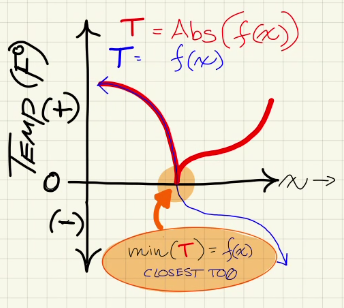 T = Abs(f(x))
T = f(x)
TEMP (F°)
(+)
0
(-)
x →
min(T) = f(x)
CLOSEST TO 0